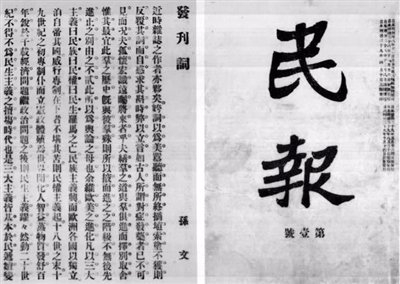 民報
第壹號
發刊詞
孫文
近時雜誌之作者亦夥矣姱詞以為美囂聽而無所終摘埴索塗不獲則
反覆其詞而自惑求其斟時弊以立言如古人所謂對症發藥者已不可
見而況夫孤懷宏識遠矚將來者乎夫繕群之道與群俱進而擇別取舍
惟其最宜此群之歷史既與彼群殊則所以掖而進之之階級不無後先
進止之別由之不貳此所以為輿論之母也余維歐美之進化凡以三大
主義曰民族曰民權曰民生羅馬之亡民族主義興而歐洲各國以獨立
洎自帝其國威行專制在下者不堪其苦則民權主義起十八世紀之末十
九世紀之初專制仆而立憲政體殖焉世界開化人智益蒸物質發舒百
年銳於千載經濟問題繼政治問題之後則民生主義躍躍然動二十世
紀不得不為民生主義之擅場時代也是三大主義皆基本於民遞嬗變